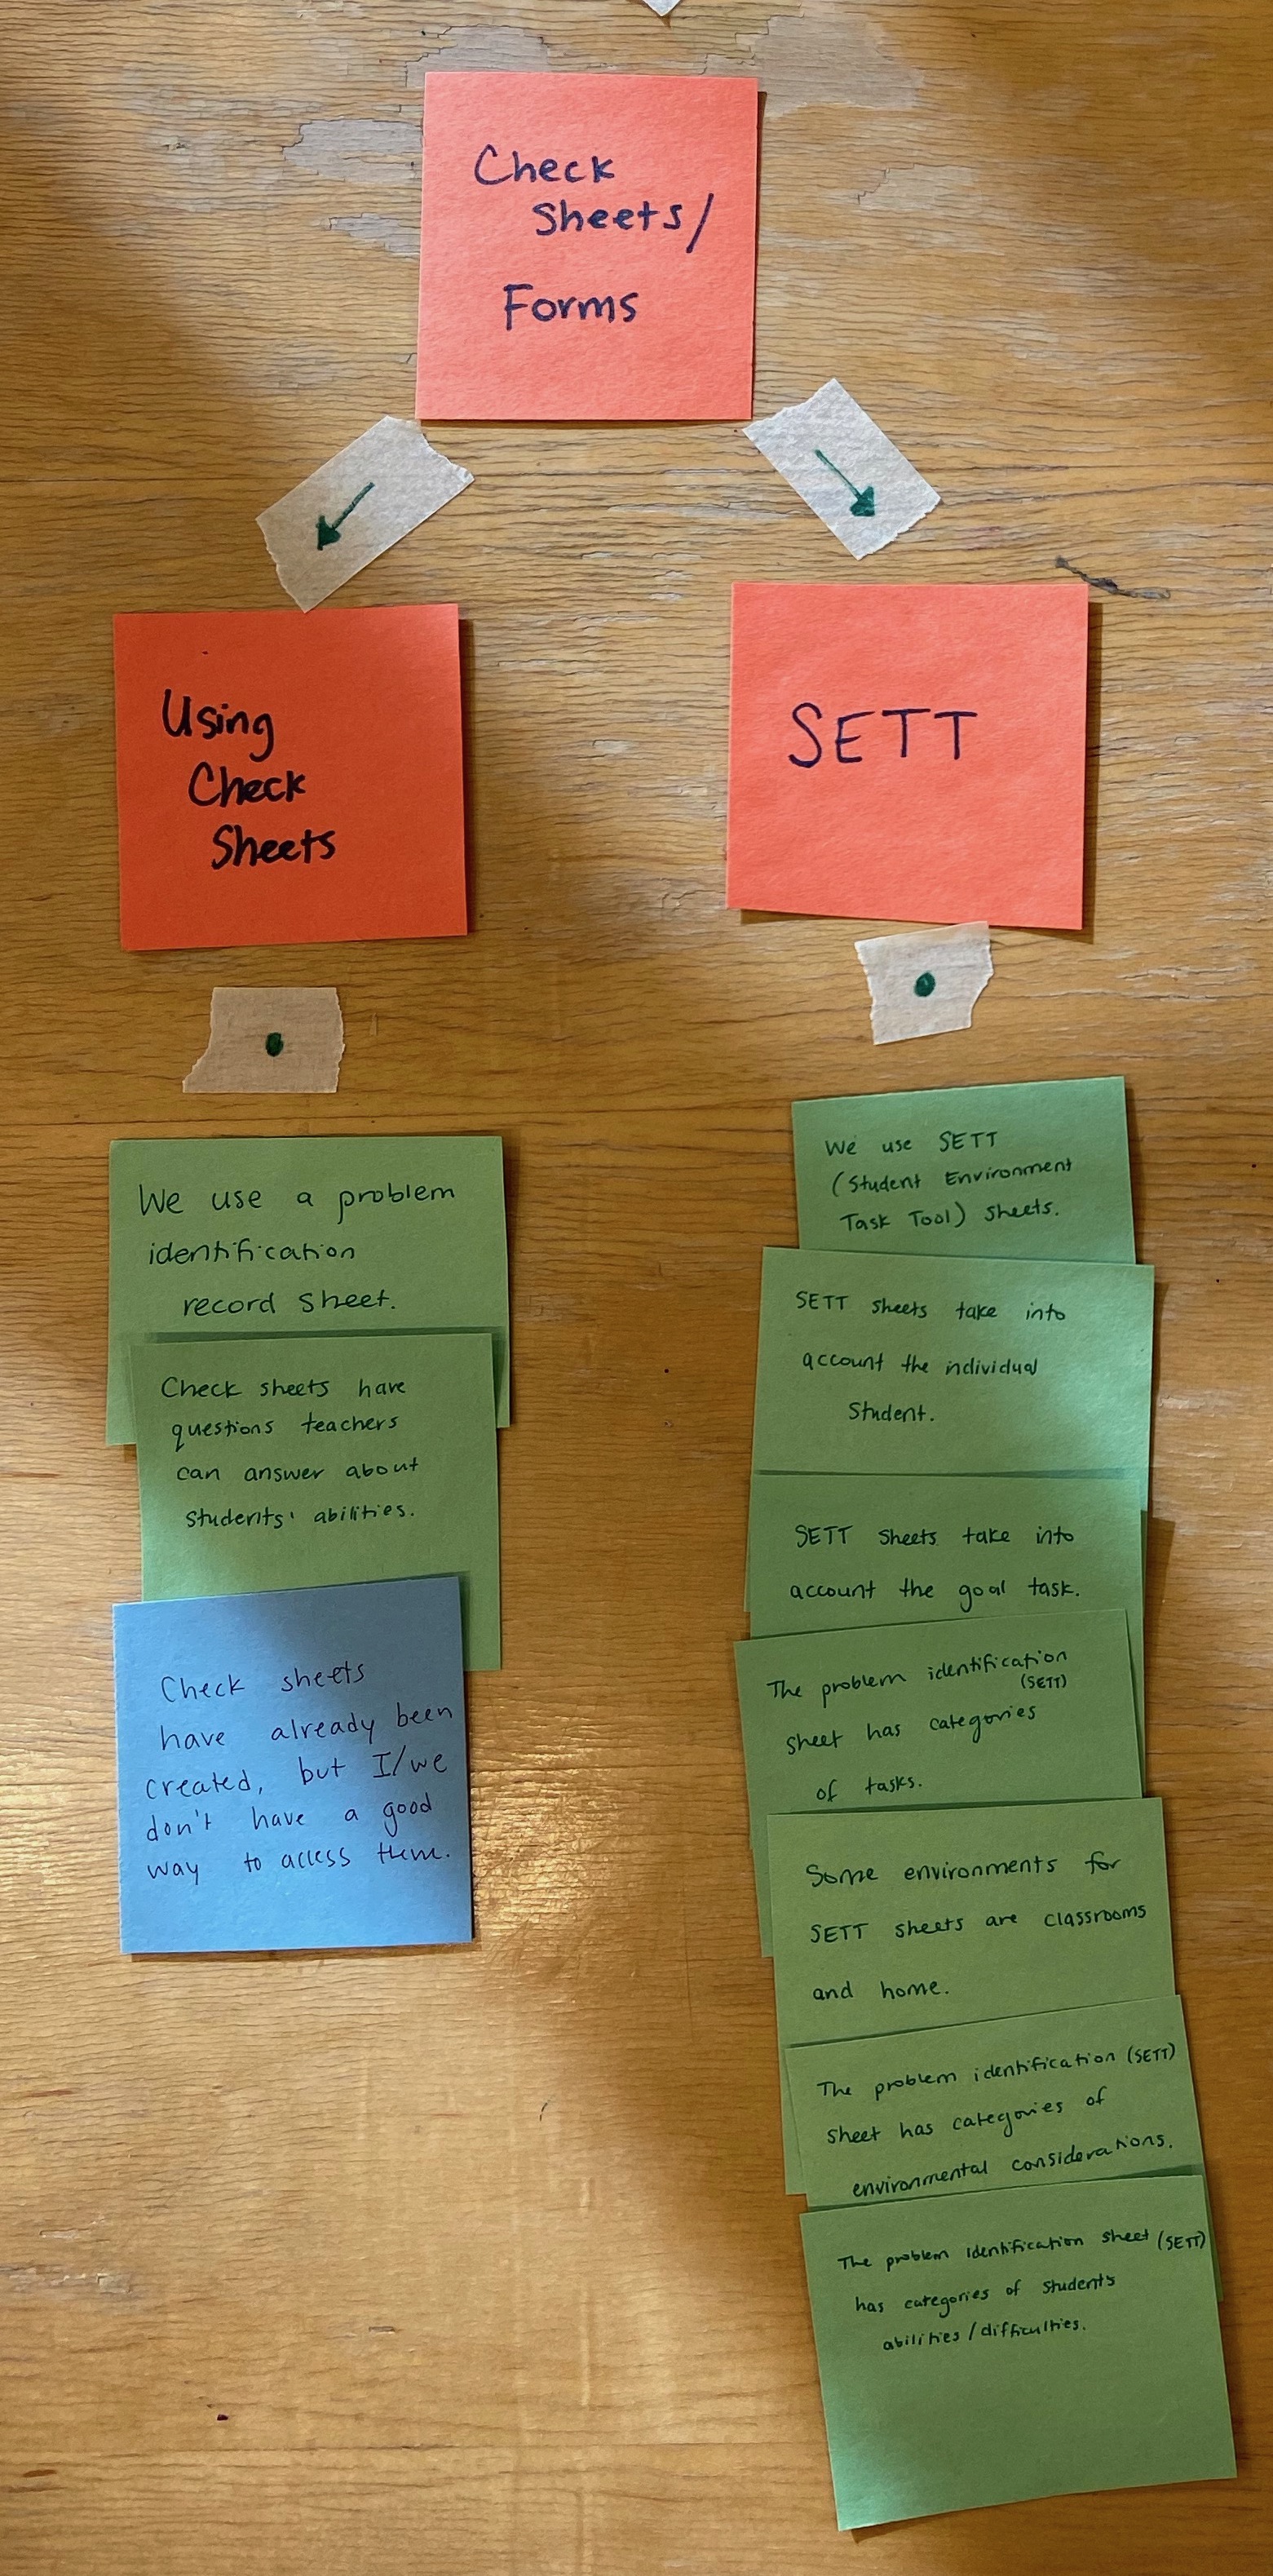 Check
Sheets/
Forms
Using
Check
Sheets
SETT
We use a problem
identification
record sheet.
Check sheets have
questions teachers
can answer about
students' abilities.
Check sheets
have already been
created, but I/we
don't have a good
way to access them.
We use SETT
(Student Environment
Task Tool) sheets.
SETT sheets take into
account the individual
student.
SETT sheets take into
account the goal task.
The problem identification
(SETT)
sheet has categories
of tasks.
Some environments for
SETT sheets are classrooms
and home.
The problem identification (SETT)
sheet has categories of
environmental considerations.
The problem identification sheet (SETT)
has categories of students
abilities/difficulties.